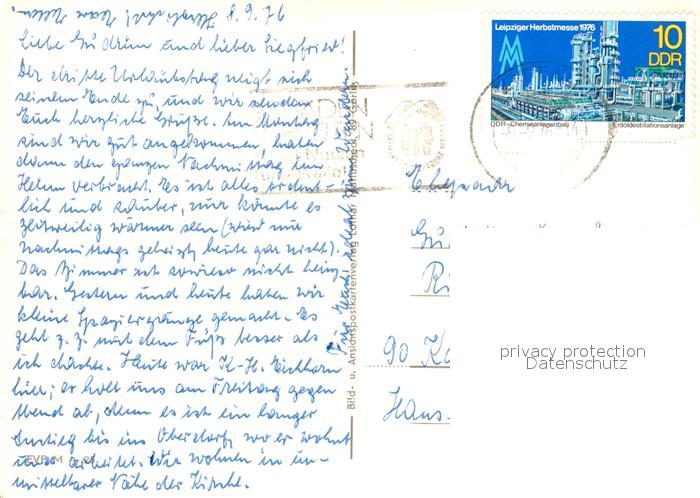 8.9.76
Liebe Gudrun und lieber Siegfried!
Der dritte Urlaubstag neigt sich
seinem Ende zu, und wir senden
Euch herzliche Grüße. Am Montag
sind wir gut angekommen, haben
dann den ganzen Nachmittag im
Heim verbracht. Es ist alles ordent-
lich und sauber, nur könnte es
zeitweilig wärmer sein (wird nur
nachmittags geheizt, heute gar nicht).
Das Zimmer ist sowieso nicht heiz-
bar. Gestern und heute haben wir
kleine Spaziergänge gemacht. Es
geht z. Z. mit dem Fuß besser als
ich dachte. Heute war K-H. Eichhorn
hier; er holt uns am Freitag gegen
Abend ab, denn es ist ein langer
Anstieg bis ins Oberdorf, wo er wohnt
und arbeitet. Wir wohnen in un-
mittelbarer Nähe der Kirche.
Bild- u. Ansichtspostkartenverlag Lothar 89 Görlitz
Leipziger Herbstmesse 1976
10
DDR
DDR-Chemieanlagenbau
Erdöldestillationsanlage
Ehepaar
Gu
Ri
90 Ka
Hans-
privacy protection
Datenschutz